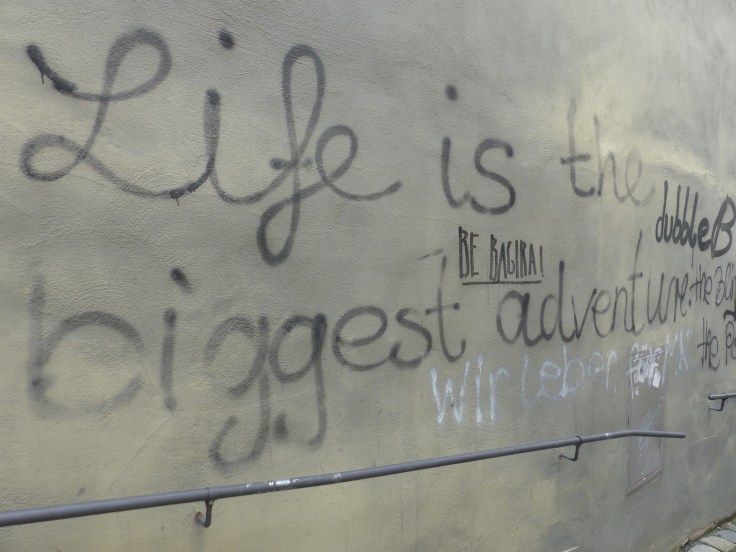 Life is the
dubbleB
BE BAGIRA!
biggest adventure.
the
the
Wir leben für